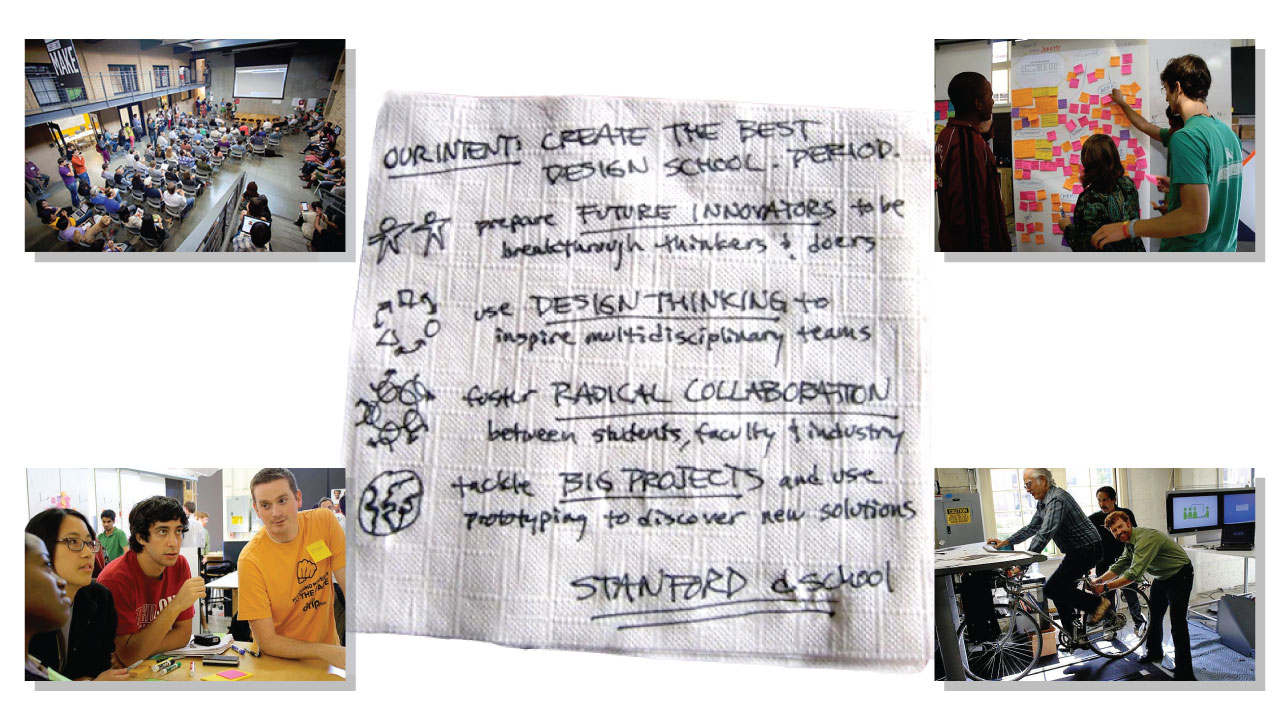 MAKE
OUR INTENT: CREATE THE BEST
DESIGN SCHOOL. PERIOD.
prepare FUTURE INNOVATORS to be
breakthrough thinkers & doers
use DESIGN THINKING to
inspire multidisciplinary teams
foster RADICAL COLLABORATION
between students, faculty & industry
tackle BIG PROJECTS and use
prototyping to discover new solutions
STANFORD d school
CAUTION